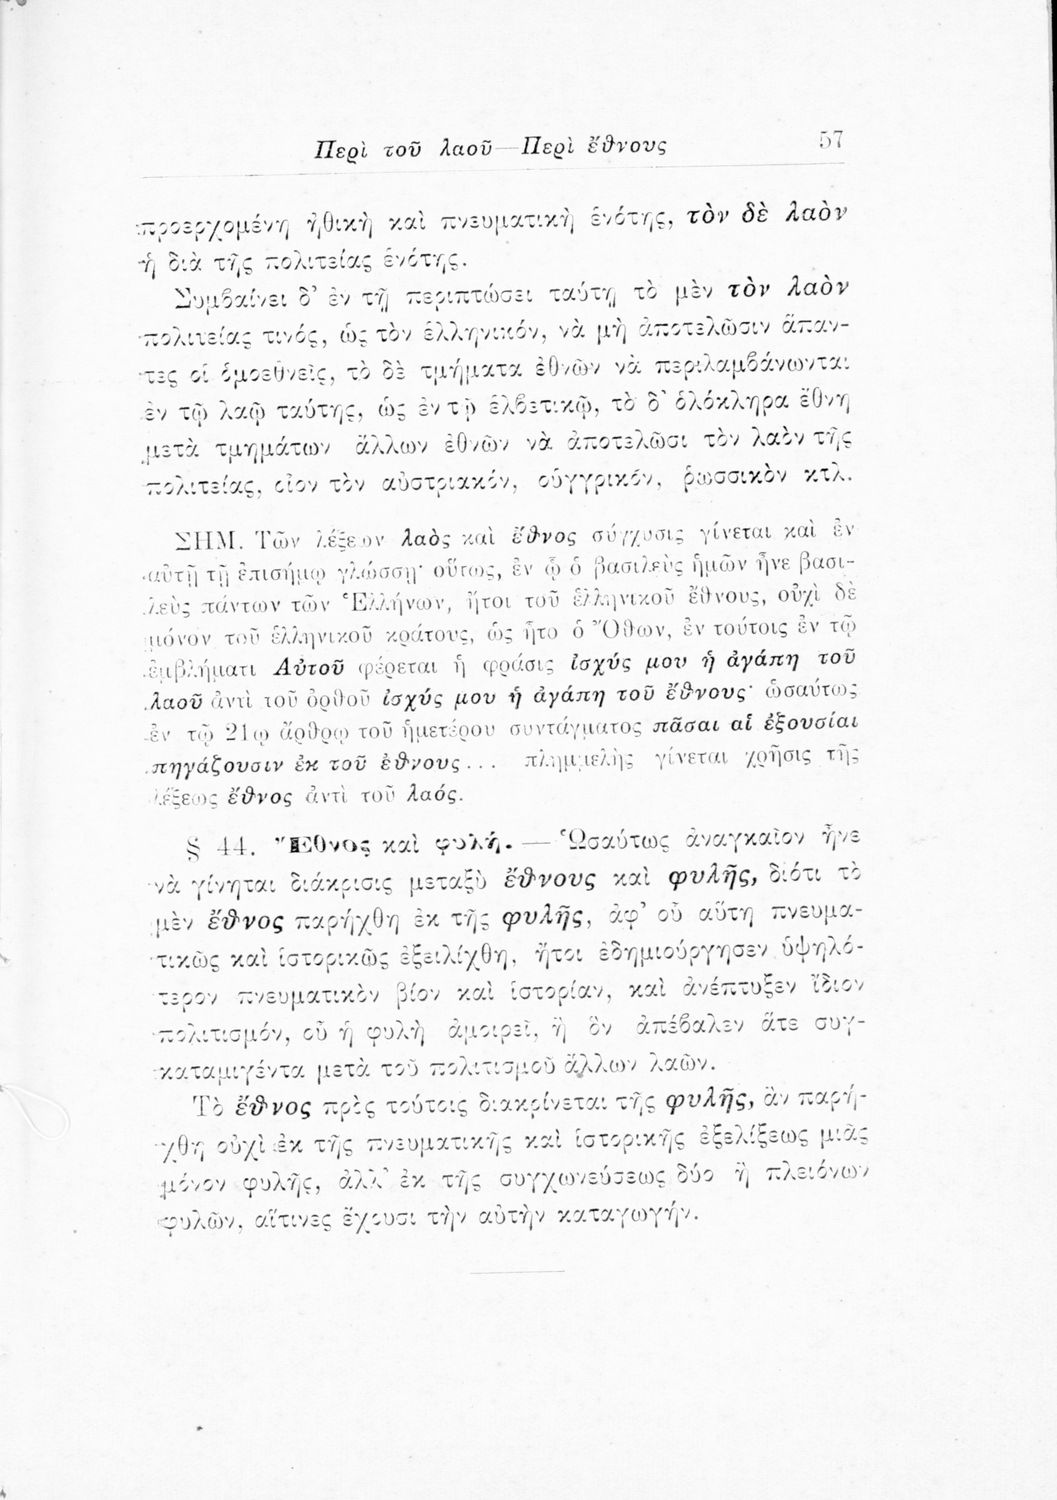 Περὶ τοῦ λαοῦ—Περὶ ἔθνους 57
προερχομένη ἠθικὴ καὶ πνευματικὴ ἑνότης, τὸν δὲ λαὸν
ἡ διὰ τῆς πολιτείας ἑνότης.
Συμβαίνει δ’ ἐν τῇ περιπτώσει ταύτῃ τὸ μὲν τὸν λαὸν
πολιτείας τινός, ὡς τὸν ἑλληνικόν, νὰ μὴ ἀποτελῶσιν ἅπαν-
τες οἱ ὁμοεθνεῖς, τὸ δὲ τμήματα ἐθνῶν νὰ περιλαμβάνωνται
ἐν τῷ λαῷ ταύτης, ὡς ἐν τῷ ἑλβετικῷ, τὸ δ’ ὁλόκληρα ἔθνη
μετὰ τμημάτων ἄλλων ἐθνῶν νὰ ἀποτελῶσι τὸν λαὸν τῆς
πολιτείας, οἷον τὸν αὐστριακόν, οὑγγρικόν, ῥωσσικὸν κτλ.
ΣΗΜ. Τῶν λέξεων λαὸς καὶ ἔθνος σύγχυσις γίνεται καὶ ἐν
αὐτῇ τῇ ἐπισήμῳ γλώσσῃ· οὕτως, ἐν ᾧ ὁ βασιλεὺς ἡμῶν ἦνε βασι-
λεὺς πάντων τῶν Ἑλλήνων, ἤτοι τοῦ ἑλληνικοῦ ἔθνους, οὐχὶ δὲ
μόνον τοῦ ἑλληνικοῦ κράτους, ὡς ἦτο ὁ Ὄθων, ἐν τούτοις ἐν τῷ
ἐμβλήματι Αὐτοῦ φέρεται ἡ φράσις ἰσχύς μου ἡ ἀγάπη τοῦ
λαοῦ ἀντὶ τοῦ ὀρθοῦ ἰσχύς μου ἡ ἀγάπη τοῦ ἔθνους· ὡσαύτως
ἐν τῷ 21ῳ ἄρθρῳ τοῦ ἡμετέρου συντάγματος πᾶσαι αἱ ἐξουσίαι
πηγάζουσιν ἐκ τοῦ ἔθνους... πλημμελὴς γίνεται χρῆσις τῆς
λέξεως ἔθνος ἀντὶ τοῦ λαός.
§ 44. Ἔθνος καὶ φυλή. — Ὡσαύτως ἀναγκαῖον ἦνε
νὰ γίνηται διάκρισις μεταξὺ ἔθνους καὶ φυλῆς, διότι τὸ
μὲν ἔθνος παρήχθη ἐκ τῆς φυλῆς, ἀφ’ οὗ αὕτη πνευμα-
τικῶς καὶ ἱστορικῶς ἐξειλίχθη, ἤτοι ἐδημιούργησεν ὑψηλό-
τερον πνευματικὸν βίον καὶ ἱστορίαν, καὶ ἀνέπτυξεν ἴδιον
πολιτισμόν, οὗ ἡ φυλὴ ἀμοιρεῖ, ἢ ὃν ἀπέβαλεν ἅτε συγ-
καταμιγέντα μετὰ τοῦ πολιτισμοῦ ἄλλων λαῶν.
Τὸ ἔθνος πρὸς τούτοις διακρίνεται τῆς φυλῆς, ἂν παρή-
χθη οὐχὶ ἐκ τῆς πνευματικῆς καὶ ἱστορικῆς ἐξελίξεως μιᾶς
μόνον φυλῆς, ἀλλ’ ἐκ τῆς συγχωνεύσεως δύο ἢ πλειόνων
φυλῶν, αἵτινες ἔχουσι τὴν αὐτὴν καταγωγήν.